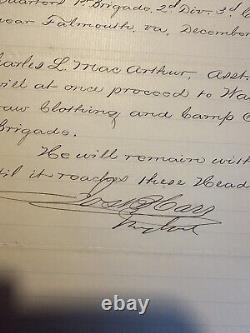 quarters 1st Brigade, 2d Div. 3d C
near Falmouth, Va, December
Charles L. MacArthur, Asst.
will at once proceed to Wa
raw Clothing and Camp E
Brigade.
He will remain with
til it reaches these Head
ebay